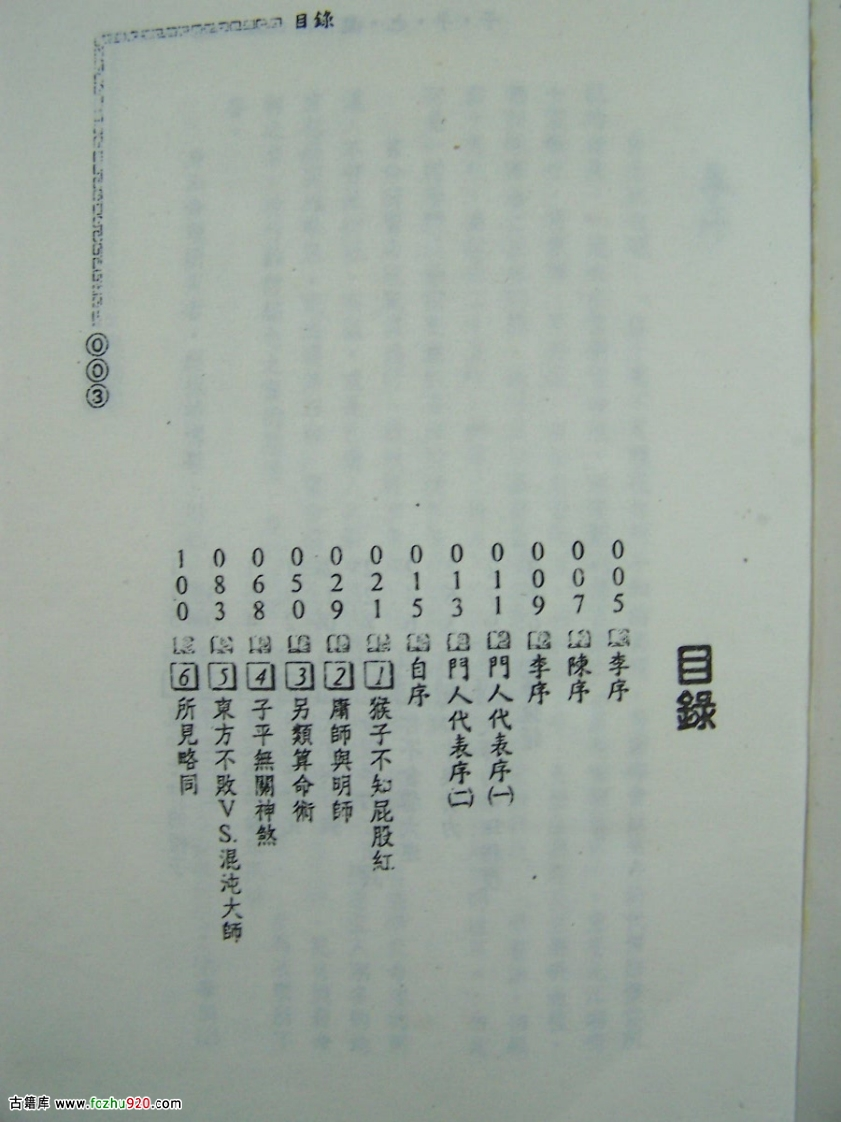 目錄
003
目錄
005 李序
007 陳序
009 李序
011 門人代表序(一)
013 門人代表序(二)
015 自序
021 1 猴子不知屁股紅
029 2 庸師與明師
050 3 另類算命術
068 4 子平無關神煞
083 5 東方不敗VS.混沌大師
100 6 所見略同
古籍库 www.fczhu920.com